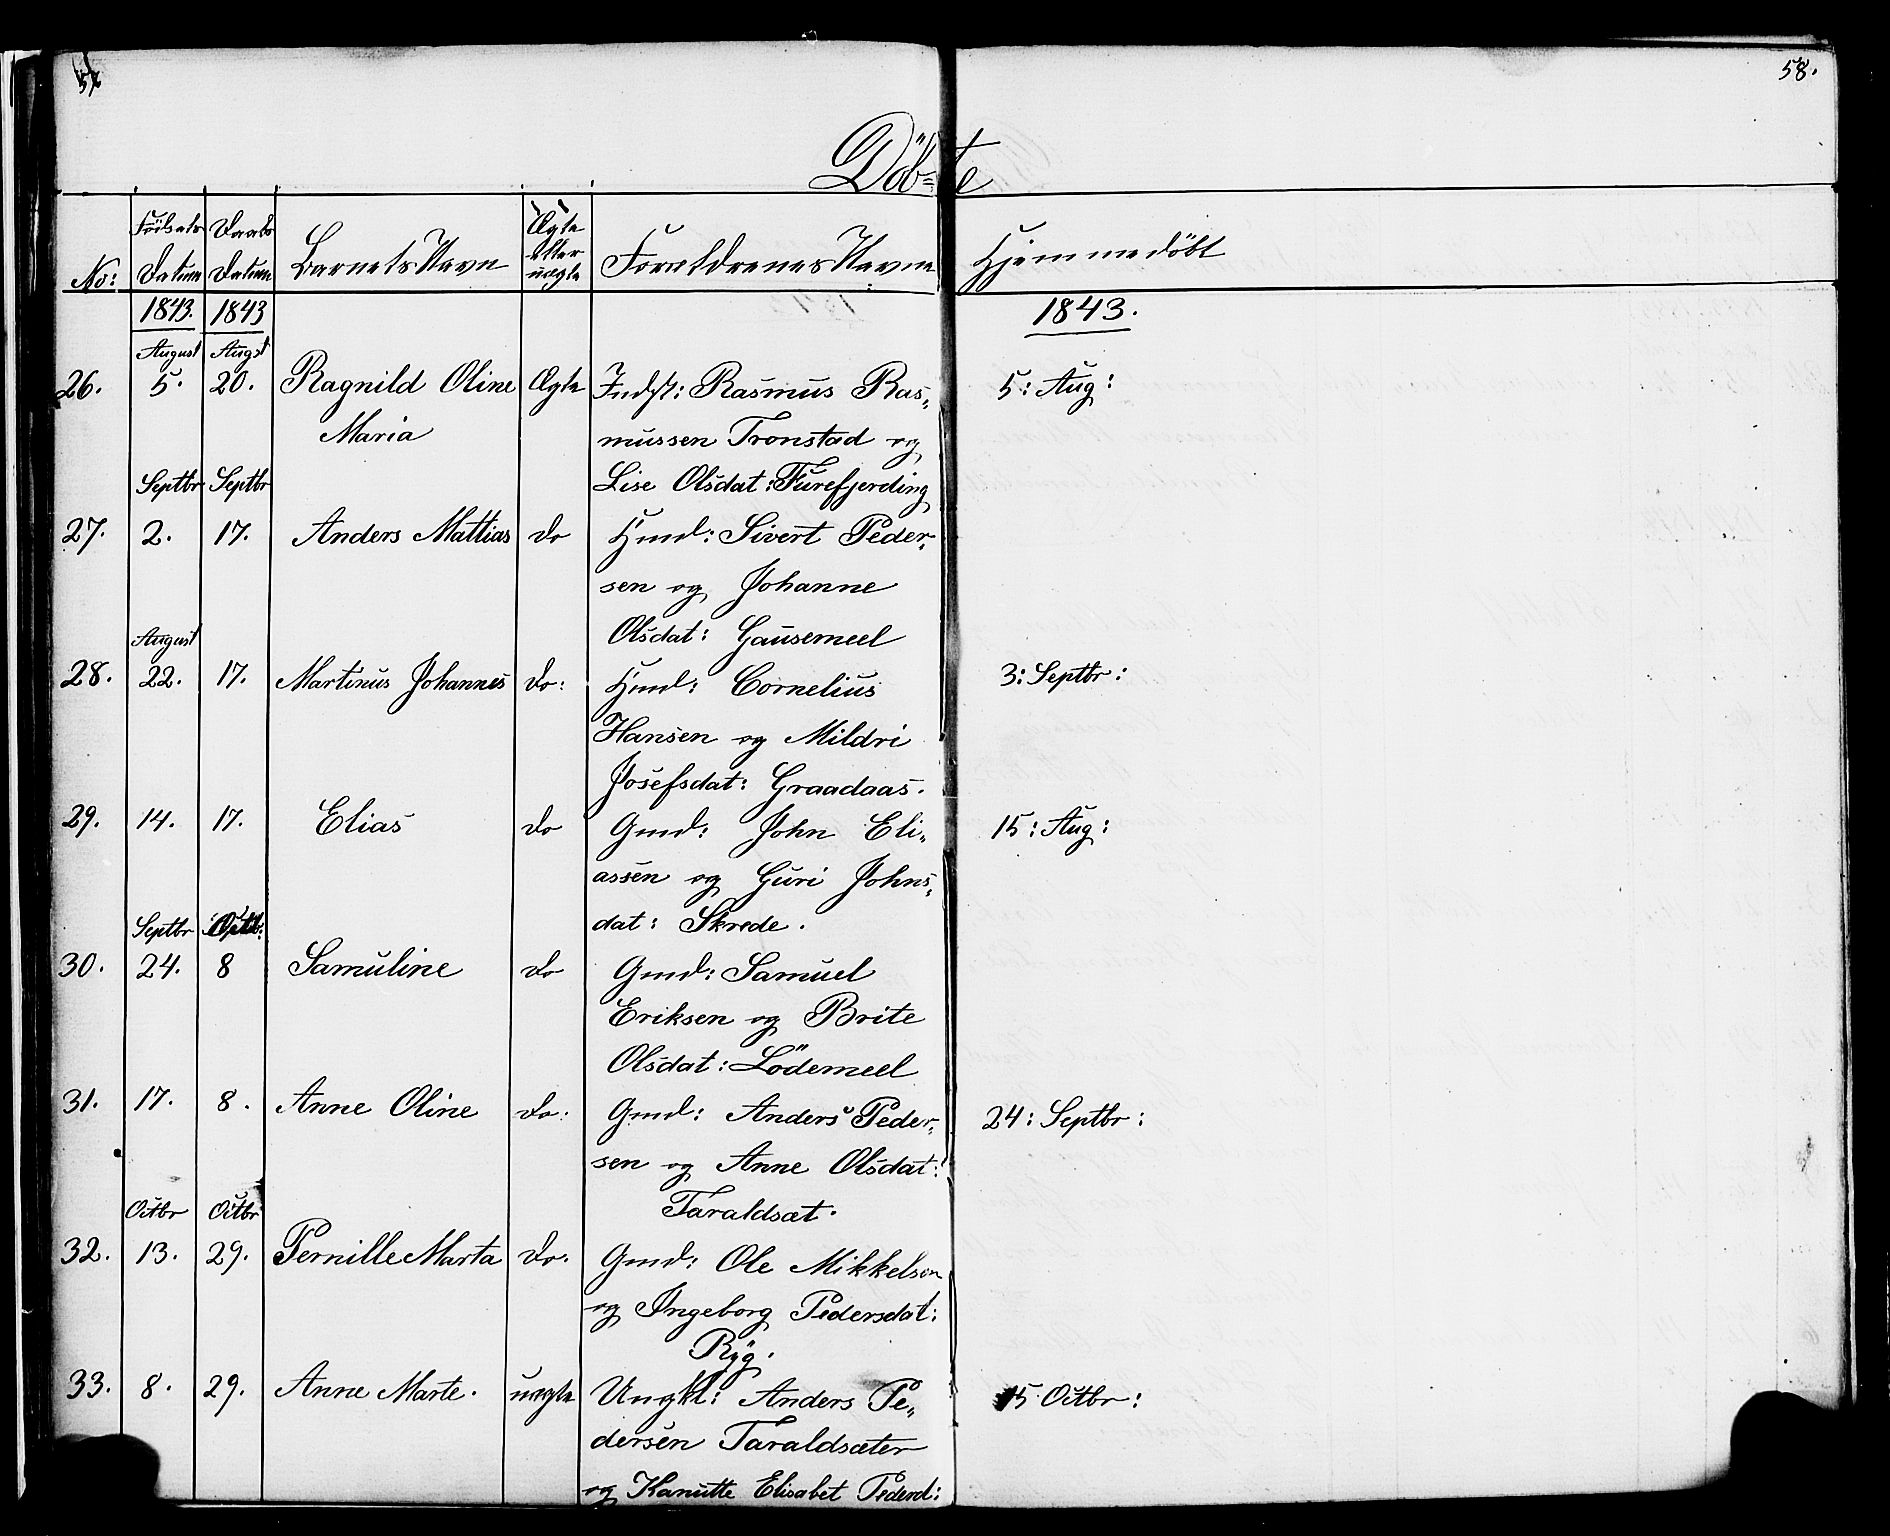 57
58.
Döb=te
No: Födsels Datum Daabs Datum Barnets Navn Ægte eller uægte Forældrenes Navne Hjemmedöbt
1843. 1843 1843.
August Augst
26. 5. 20. Ragnild Oline Ægte Indst: Rasmus Ras„ 5: Aug:
Maria mussen Tronstad og
Septbr Septbr Lise Olsdat: Furefjerding
27. 2. 17. Anders Mattias do Hmd: Sivert Peder„
sen og Johanne
August Olsdat: Gausemeel
28. 22. 17. Martinus Johannes do: Hmd: Cornelius 3: Septbr:
Hansen og Mildri
Josefsdat: Graadaas.
29. 14. 17. Elias do Gmd: John Eli„ 15: Aug:
assen og Guri Johns„
Septbr Octb: dat: Skrede.
30. 24. 8 Samuline do Gmd: Samuel
Eriksen og Brite
Olsdat: Lödemeel
31. 17. 8. Anne Oline do: Gmd: Anders Peder„ 24: Septbr:
sen og Anne Olsdat:
Octbr Octbr Taraldsæt.
32. 13. 29. Pernille Marta do. Gmd: Ole Mikkelsen
og Ingeborg Pedersdat:
Ryg.
33. 8. 29. Anne Marte. uægte Ungkl: Anders Pe„ 15 Octbr:
dersen Taraldsæter
og Kanutte Elisabet Pedersd: